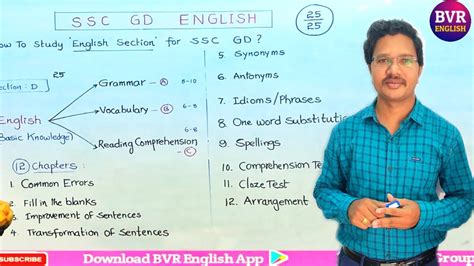 SSC GD ENGLISH
25/25
BVR
ENGLISH
How To Study 'English Section' for SSC GD?
Section : D
25
English
(Basic Knowledge)
Grammar - A 8-10
Vocabulary - B 6-8
Reading Comprehension - C 6-8
12 Chapters :
1. Common Errors
2. Fill in the blanks
3. Improvement of Sentences
4. Transformation of Sentences
5. Synonyms
6. Antonyms
7. Idioms/Phrases
8. One word Substitution
9. Spellings
10. Comprehension
11. Cloze Test
12. Arrangement
SUBSCRIBE
Download BVR English App
Group